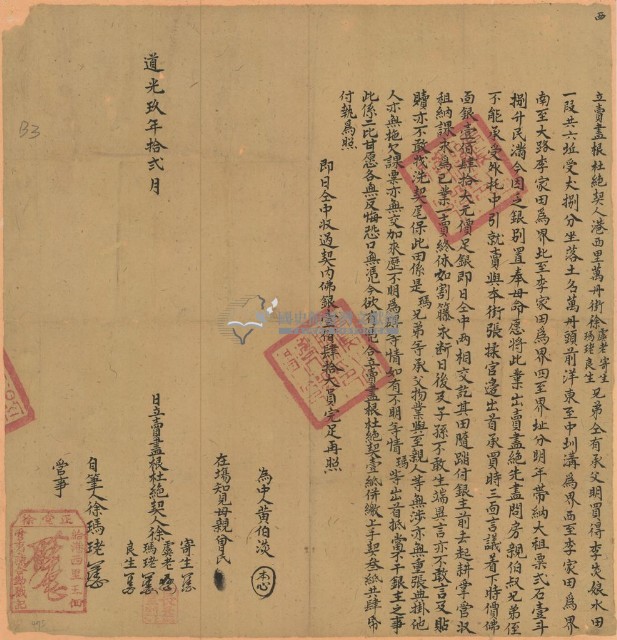 西
立賣盡根杜絕契人港西里萬丹街徐虞老寄生瑪珯良生兄弟仝有承父明買得李炎娘水田
一段共六坵受丈捌分坐落土名萬丹頭前洋東至中圳溝為界西至李家田為界
南至大路李家田為界北至李家田為界四至界址分明年帶納大租粟弍石壹斗
捌升民滿今因乏銀別置奉母命愿將此業出賣盡絕先盡問房親伯叔兄弟侄
不能承受外托中引就賣與本街張揉官邊出首承買時三面言議着下時價佛
面銀壹佰肆拾大元價足銀即日仝中兩相交訖其田隨踏付銀主前去起耕掌管收
租納課永為己業一賣終休如割籐永斷日後及子孫不敢生端異言亦不敢言及貼
贖亦不敢找洗契尾保此田係是瑪兄弟等承父物業與至親人等無涉亦無重張典掛他
人亦無拖欠課粟亦無交加來歷不明為碍等情如有不明等情瑪等出首抵當不干銀主之事
此係二比甘愿各無反悔恐口無憑今欲有憑合立賣盡根杜絕契壹紙併繳上手契叁紙共肆紙
付執為照
即日仝中收過契內佛銀壹佰肆拾大員完足再照
為中人黃伯淡
在場知見母親曾氏
道光玖年拾弍月 日立賣盡根杜絕契人徐寄生虞老瑪珯良生
自筆人徐瑪珯
當事
B3